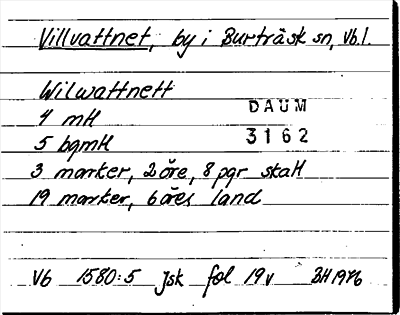 Villvattnet, by i Burträsk sn, Vb.l.
Wilwattnett
4 mH
DAUM
3162
5 bgmH
3 marker, 2 öre, 8 pgr skatt
19 marker, 6 öres land
Vb 1580:5 Jsk fol 19v BH 1976